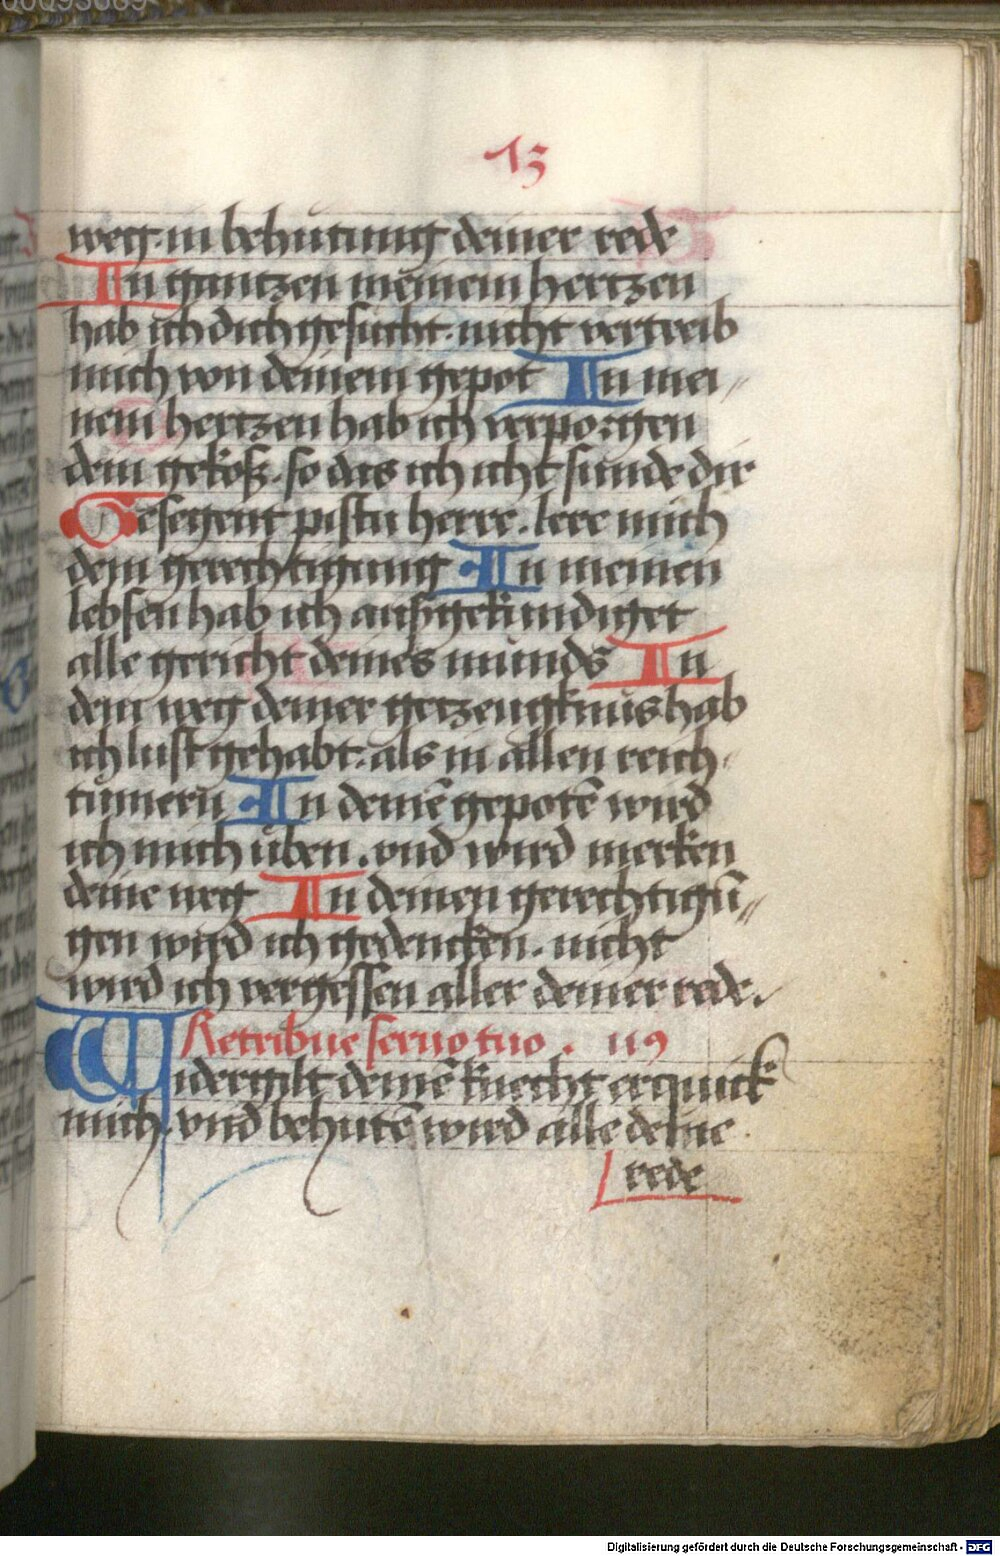 13
weg. in behutung deiner rede
In gantzen meinem hertzen
hab ich dich gesucht. nicht vertreib
mich von deinem gepot In mei//
nem hertzen hab ich verporgen
dein gekoß. so das ich icht sunde dir
Gesegent pistu herre. lere mich
dein gerechtigung In meinen
lebsen hab ich außgekundiget
alle gericht deines munds In
dem weg deiner getzeugknus hab
ich lust gehabt. als in allen reich
tumern In deinē gepotē wird
ich mich üben. vnd wird merken
deine weg In deinen gerechtigū//
gen wird ich gedencken. nicht
wird ich vergessen aller deiner rede.
Retribue seruo tuo. 119
Widergilt deinē knecht erquick
mich. vnd behutē wird alle deine
rede
Digitalisierung gefördert durch die Deutsche Forschungsgemeinschaft - DFG